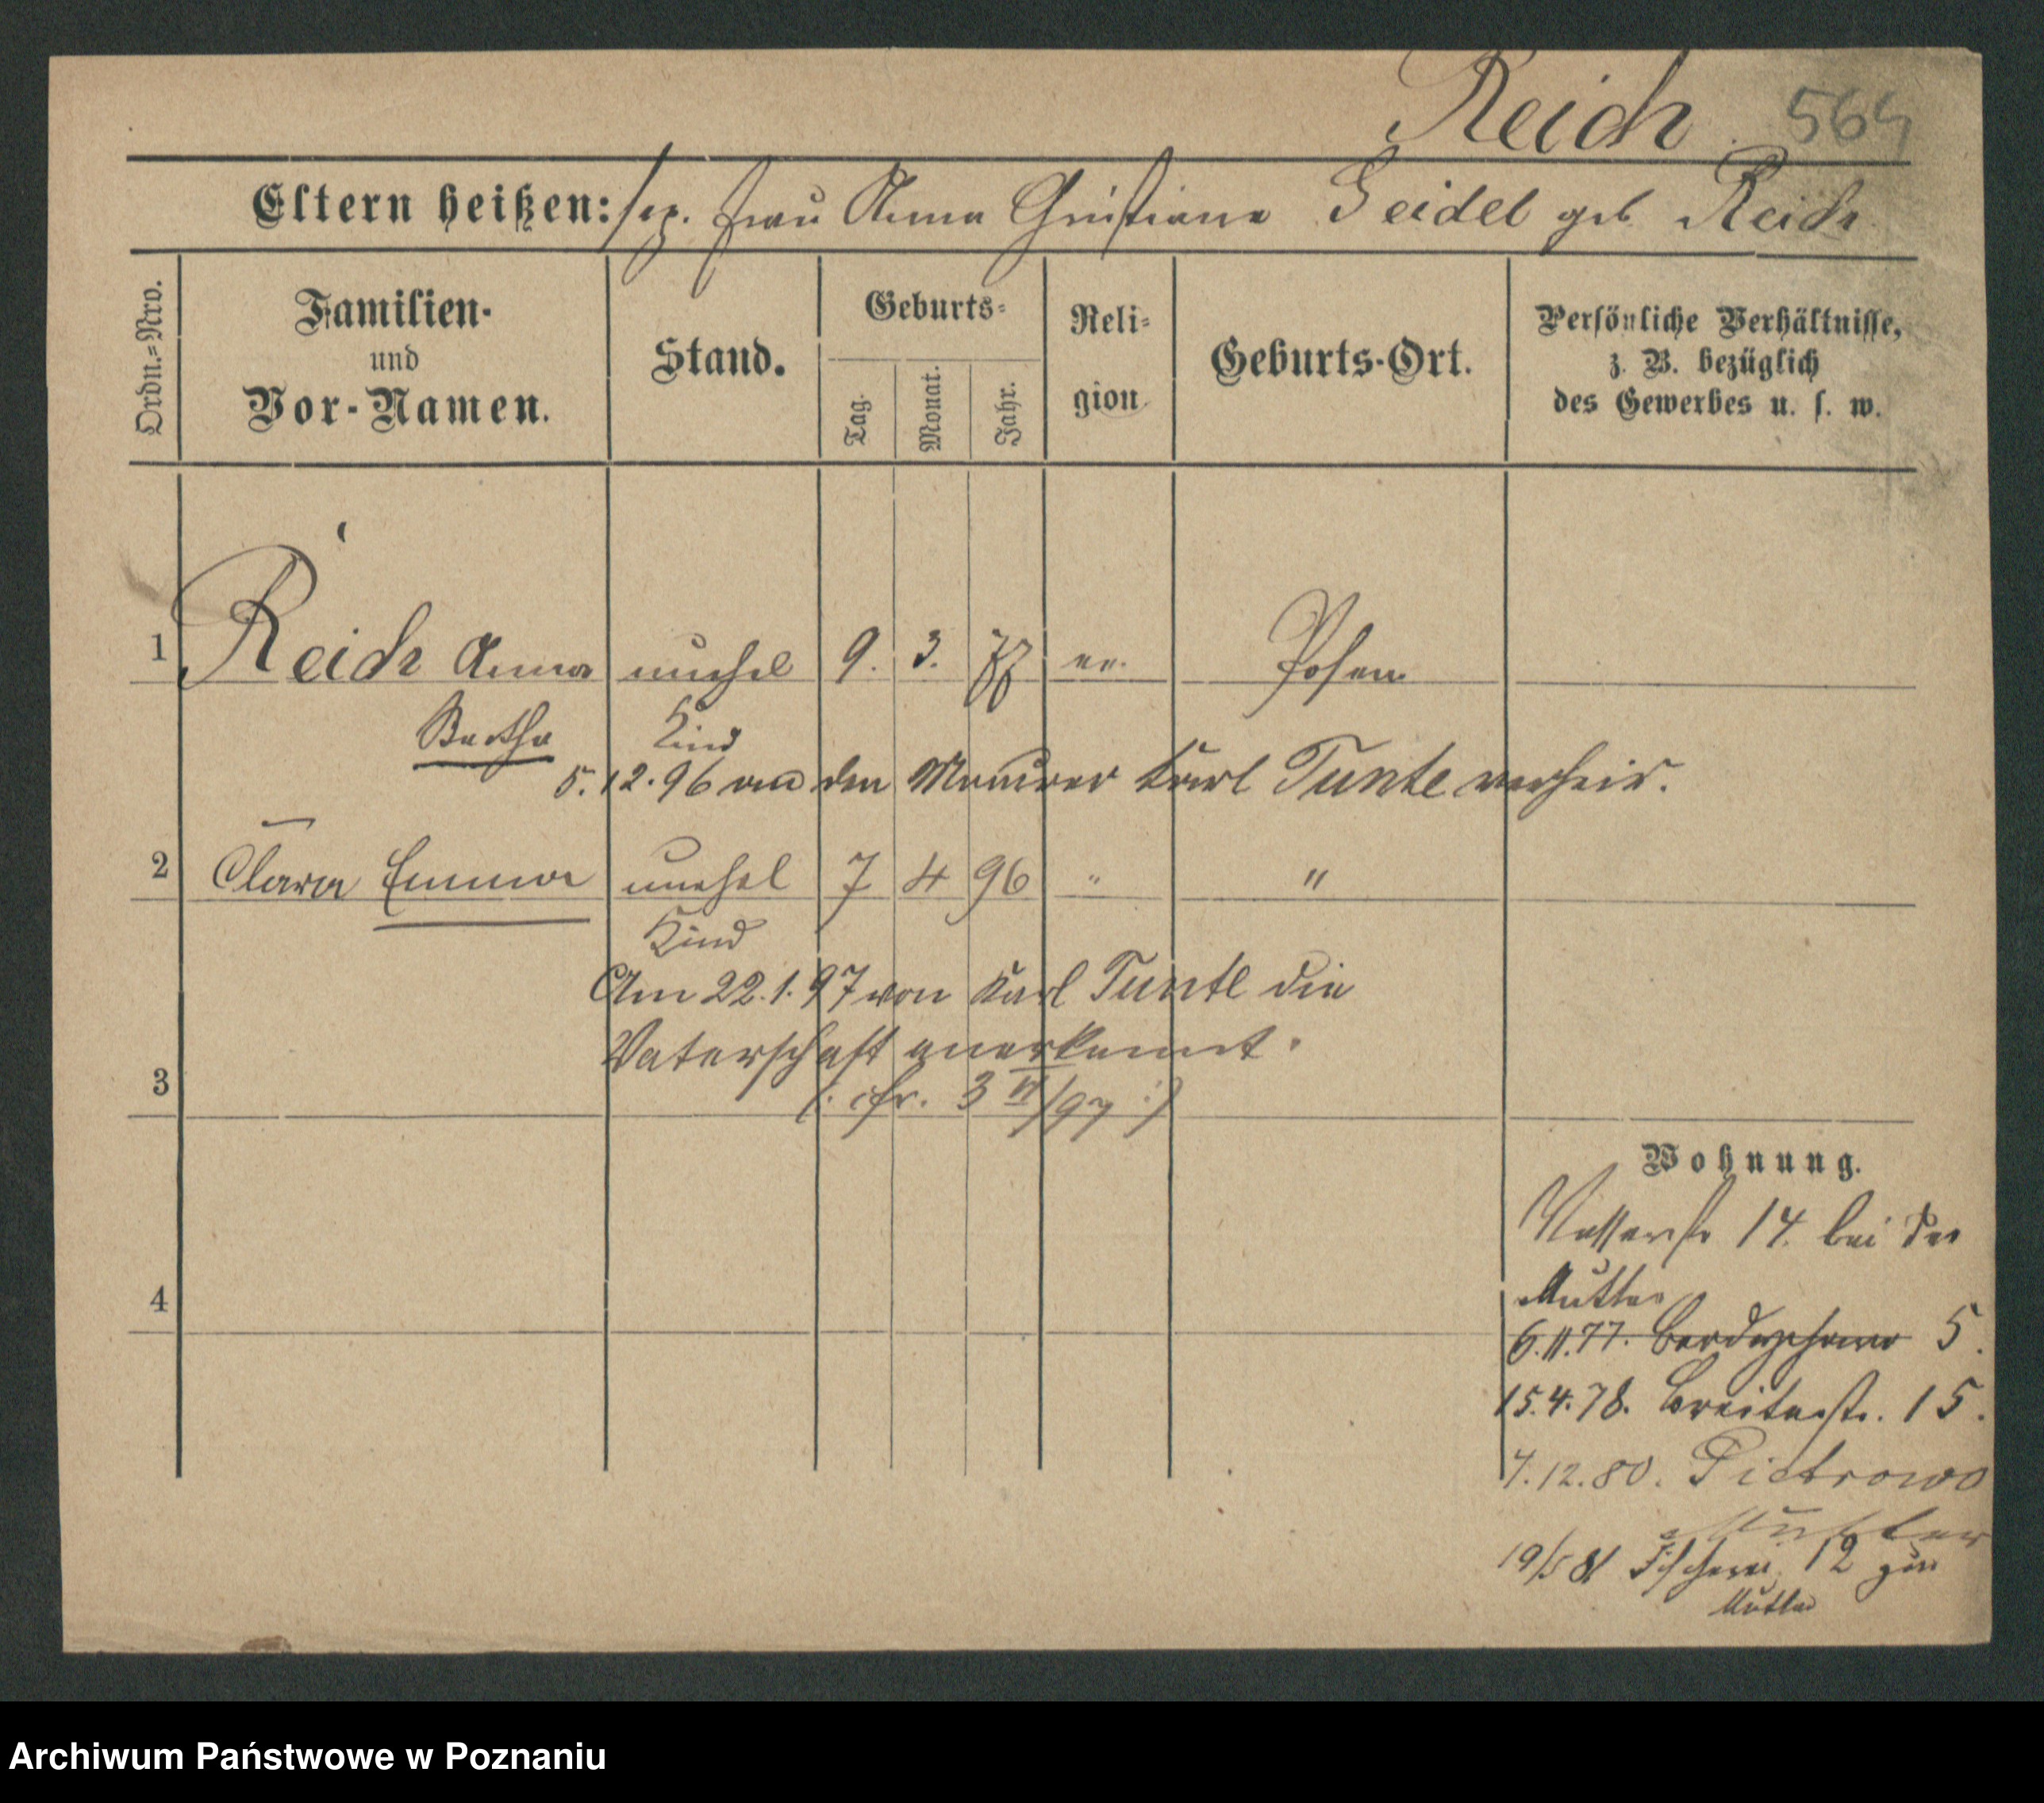 Reich 564
Eltern heißen: sep. Frau Anna Christiane Seidel geb. Reich
Ordn.=Nro.
Familien-
und
Vor-Namen.
Stand.
Geburts-
Tag.
Monat.
Jahr.
Reli-
gion
Geburts-Ort.
Persönliche Verhältnisse,
z. B. bezüglich
des Gewerbes u. s. w.
1 Reich Anna unehel 9. 3. 77 ev. Posen
Bertha Kind
5.12.96 an den Maurer Karl Tunte verheir.
2 Clara Emma unehel 7 4 96 " "
Kind
Am 22.1.97 von Karl Tunte die
Vaterschaft anerkannt.
3 (: cfr. 3 VI/97 :)
Wohnung.
Wasserstr 14. bei der
Mutter
4
6.11.77. 5.
15.4.78. Breitestr. 15.
7.12.80. Pietrowo
Mutter
19/5 81 Fischerei 12 zur
Mutter
Archiwum Państwowe w Poznaniu